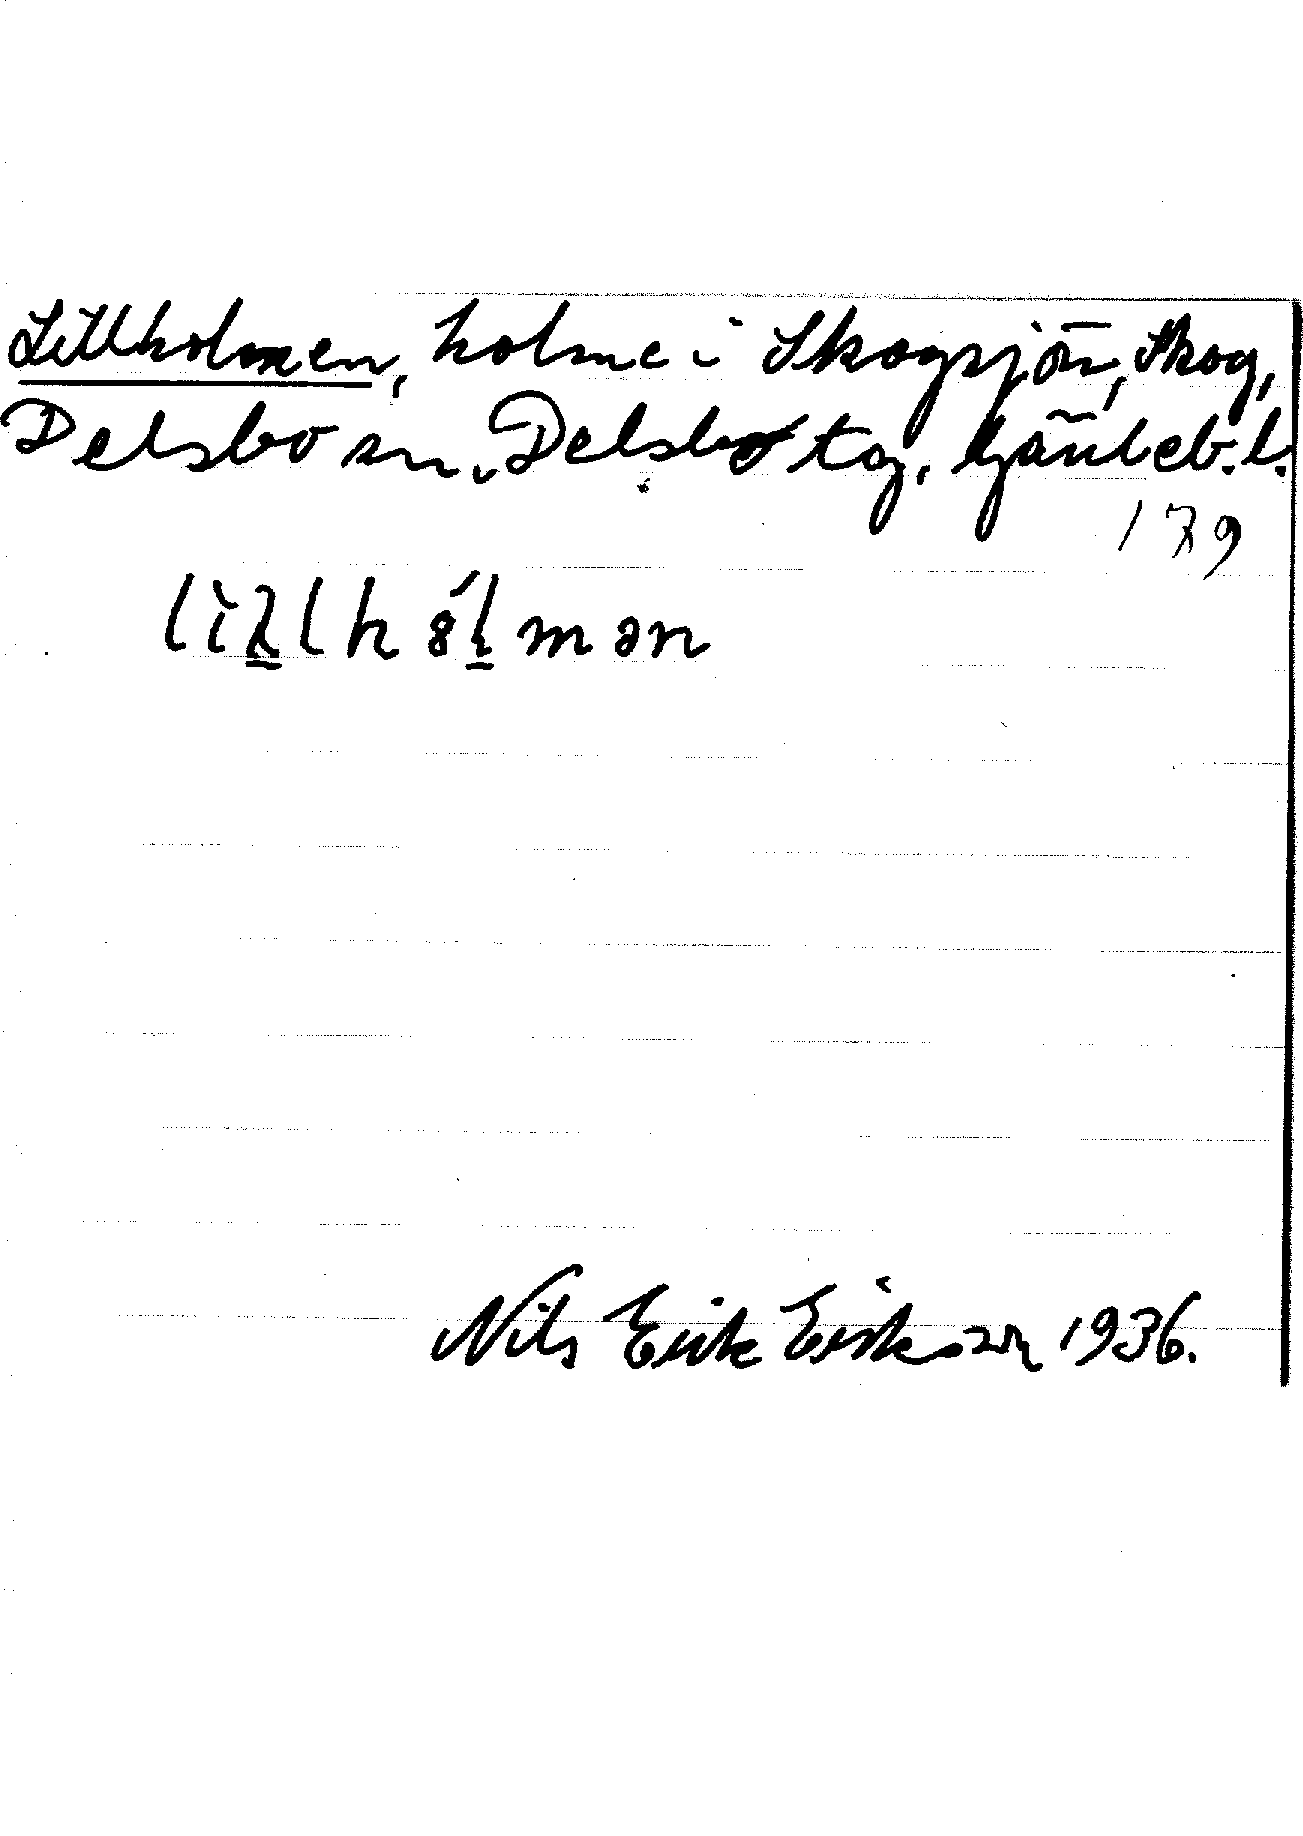 Lillholmen, holme i Skogsjön, Skog,
Delsbo sn, Delsbo tg, Gävleb. l.
179
Nils Erik Eriksson 1936.